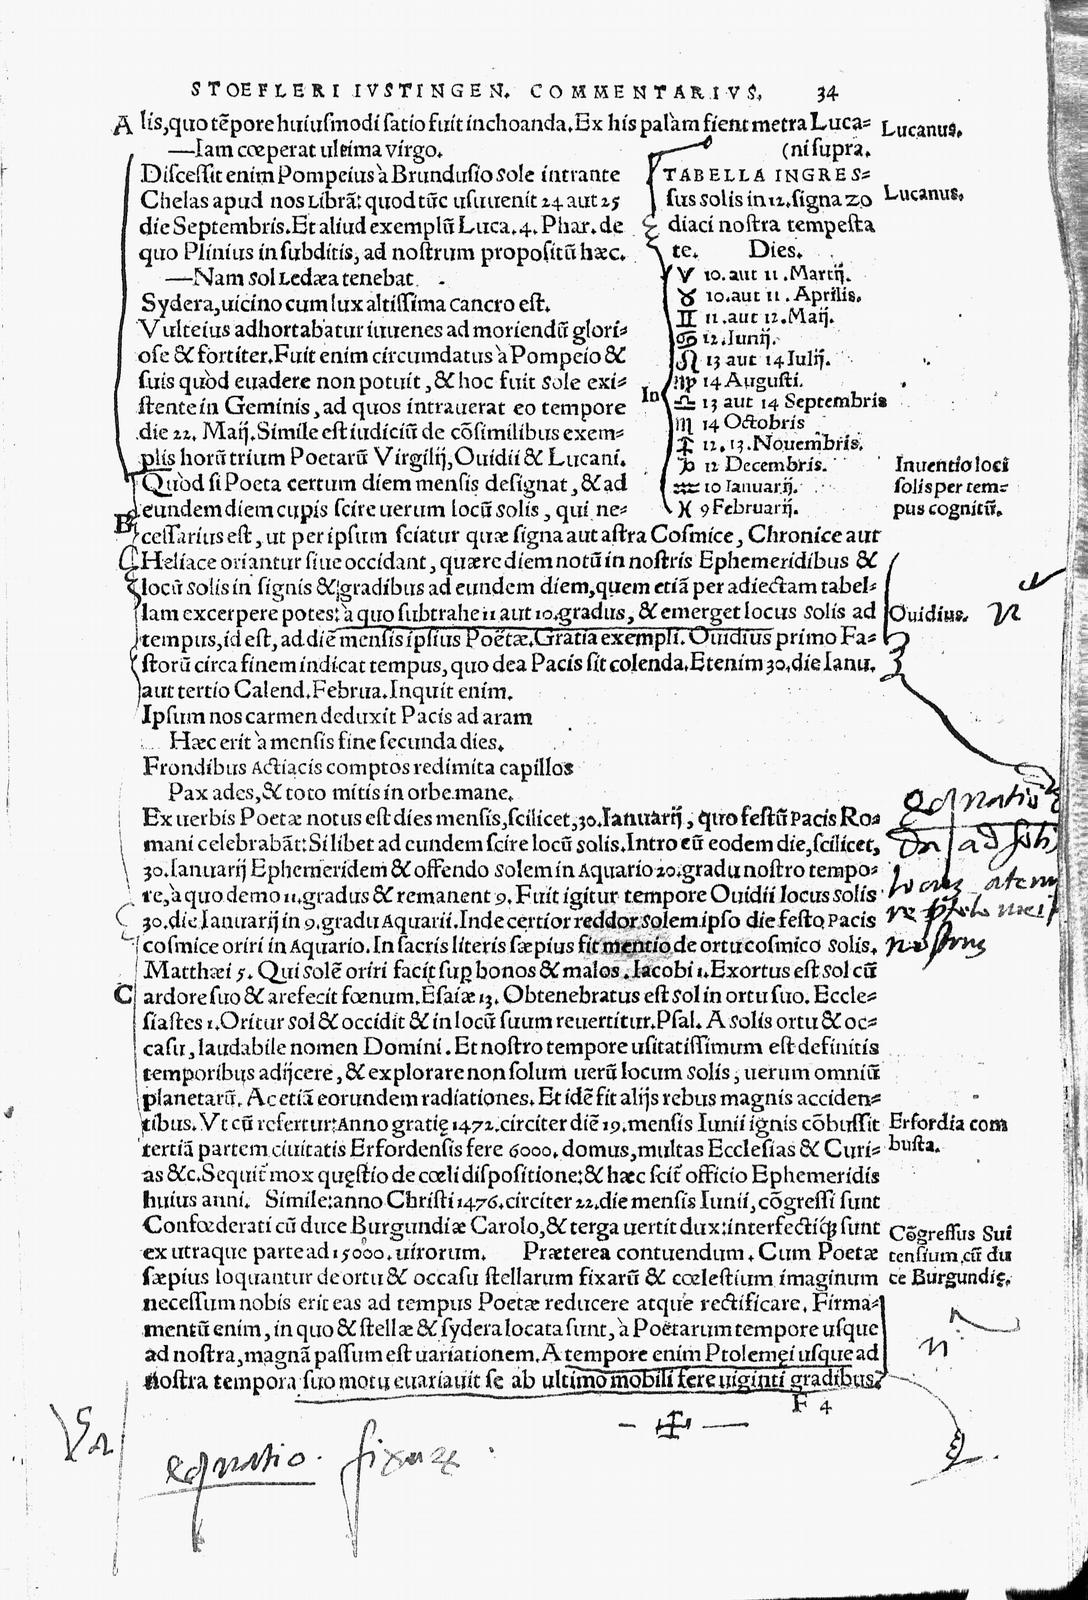 STOEFLERI IVSTINGEN. COMMENTARIVS. 34
A lis, quo tẽpore huiusmodi satio fuit inchoanda. Ex his palàm fient metra Luca=
Lucanus.
—Iam cœperat ultima virgo. (ni supra.
Discessit enim Pompeius à Brundusio sole intrante
Chelas apud nos Librã: quod tũc usuuenit 24 aut 25
die Septembris. Et aliud exemplũ Luca. 4. Phar. de
quo Plinius in subditis, ad nostrum propositũ hæc.
—Nam sol Ledæa tenebat
Sydera, uicino cum lux altissima cancro est.
Vulteius adhortabatur iuuenes ad moriendũ glori=
ose & fortiter. Fuit enim circumdatus à Pompeio &
suis quòd euadere non potuit, & hoc fuit sole exi=
stente in Geminis, ad quos intrauerat eo tempore
die 22. Maij. Simile est iudiciũ de cõsimilibus exem=
plis horũ trium Poetarũ Virgilij, Ouidii & Lucani.
Quòd si Poeta certum diem mensis designat, & ad
B eundem diem cupis scire uerum locũ solis, qui ne=
TABELLA INGRES=
sus solis in 12. signa zo
Lucanus.
diaci nostra tempesta
te. Dies.
In
♈ 10. aut 11. Martij.
♉ 10. aut 11. Aprilis.
♊ 11. aut 12. Maij.
♋ 12. Iunij.
♌ 13 aut 14 Iulij.
♍ 14 Augusti.
♎ 13 aut 14 Septembris
♏ 14 Octobris
♐ 12. 13. Nouembris.
♑ 12 Decembris.
♒ 10 Ianuarij.
♓ 9 Februarij.
Inuentio loci
solis per tem=
pus cognitũ.
cessarius est, ut per ipsum sciatur quæ signa aut astra Cosmice, Chronice aut
Heliace oriantur siue occidant, quære diem notũ in nostris Ephemeridibus &
locũ solis in signis & gradibus ad eundem diem, quem etiã per adiectam tabel=
lam excerpere potes: à quo subtrahe 11 aut 10. gradus, & emerget locus solis ad
Ouidius.
tempus, id est, ad diẽ mensis ipsius Poëtæ. Gratia exempli. Ouidius primo Fa=
storũ circa finem indicat tempus, quo dea Pacis sit colenda. Etenim 30. die Ianu.
aut tertio Calend. Februa. Inquit enim.
Ipsum nos carmen deduxit Pacis ad aram
Hæc erit à mensis fine secunda dies.
Frondibus Actiacis comptos redimita capillos
Pax ades, & toto mitis in orbe mane.
Ex uerbis Poetæ notus est dies mensis, scilicet, 30. Ianuarij, quo festũ Pacis Ro=
mani celebrabãt: Si libet ad eundem scire locũ solis. Intro eũ eodem die, scilicet,
30. Ianuarij Ephemeridem & offendo solem in Aquario 20. gradu nostro tempo=
re, à quo demo 11. gradus & remanent 9. Fuit igitur tempore Ouidii locus solis
30. die Ianuarij in 9. gradu Aquarii. Inde certior reddor solem ipso die festo Pacis
cosmice oriri in Aquario. In sacris literis sæpius fit mentio de ortu cosmico solis.
Matthæi 5. Qui solẽ oriri facit sup bonos & malos. Iacobi 1. Exortus est sol cũ
C ardore suo & arefecit fœnum. Esaiæ 13. Obtenebratus est sol in ortu suo. Eccle=
siastes 1. Oritur sol & occidit & in locũ suum reuertitur. Psal. A solis ortu & oc=
casu, laudabile nomen Domini. Et nostro tempore usitatissimum est definitis
temporibus adijcere, & explorare non solum uerũ locum solis, uerum omniũ
planetarũ. Ac etiã eorundem radiationes. Et idẽ fit alijs rebus magnis acciden=
tibus. Vt cũ refertur: Anno gratię 1472. circiter diẽ 19. mensis Iunii ignis cõbussit
Erfordia com
tertiã partem ciuitatis Erfordensis fere 6000. domus, multas Ecclesias & Curi=
busta.
as &c. Sequit mox quęstio de cœli dispositione: & hæc scit officio Ephemeridis
huius anni. Simile: anno Christi 1476. circiter 22. die mensis Iunii, cõgressi sunt
Confœderati cũ duce Burgundiæ Carolo, & terga uertit dux: interfectiq; sunt
Cõgressus Sui
ex utraque parte ad 15000. uirorum. Præterea contuendum. Cum Poetæ
tensium cũ du
sæpius loquantur de ortu & occasu stellarum fixarũ & cœlestium imaginum
ce Burgundię.
necessum nobis erit eas ad tempus Poetæ reducere atque rectificare. Firma=
mentũ enim, in quo & stellæ & sydera locata sunt, à Poëtarum tempore usque
ad nostra, magnã passum est uariationem. A tempore enim Ptolemęi usque ad
nostra tempora suo motu euariauit se ab ultimo mobili fere uiginti gradibus.
F 4